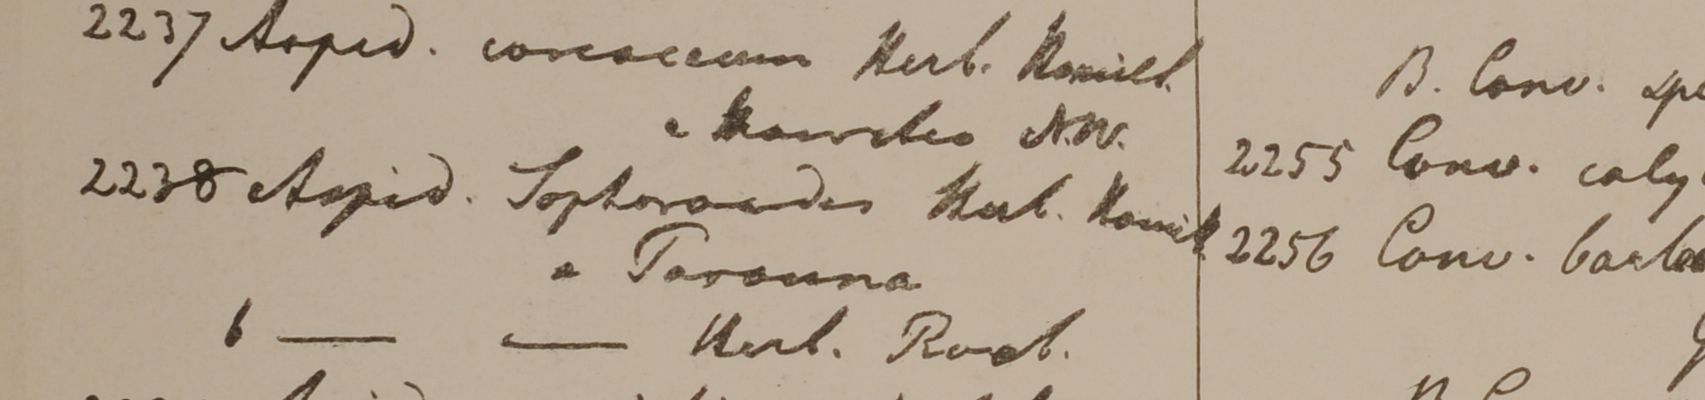 2237 Aspid. coriaceum Herb. Hamilt.
a N.W.
2238 Aspid. Sophoroides Herb. Hamilt.
a
b — — Herb. Roxb.
B. Conv.
2255 Conv. caly
2256 Conv.